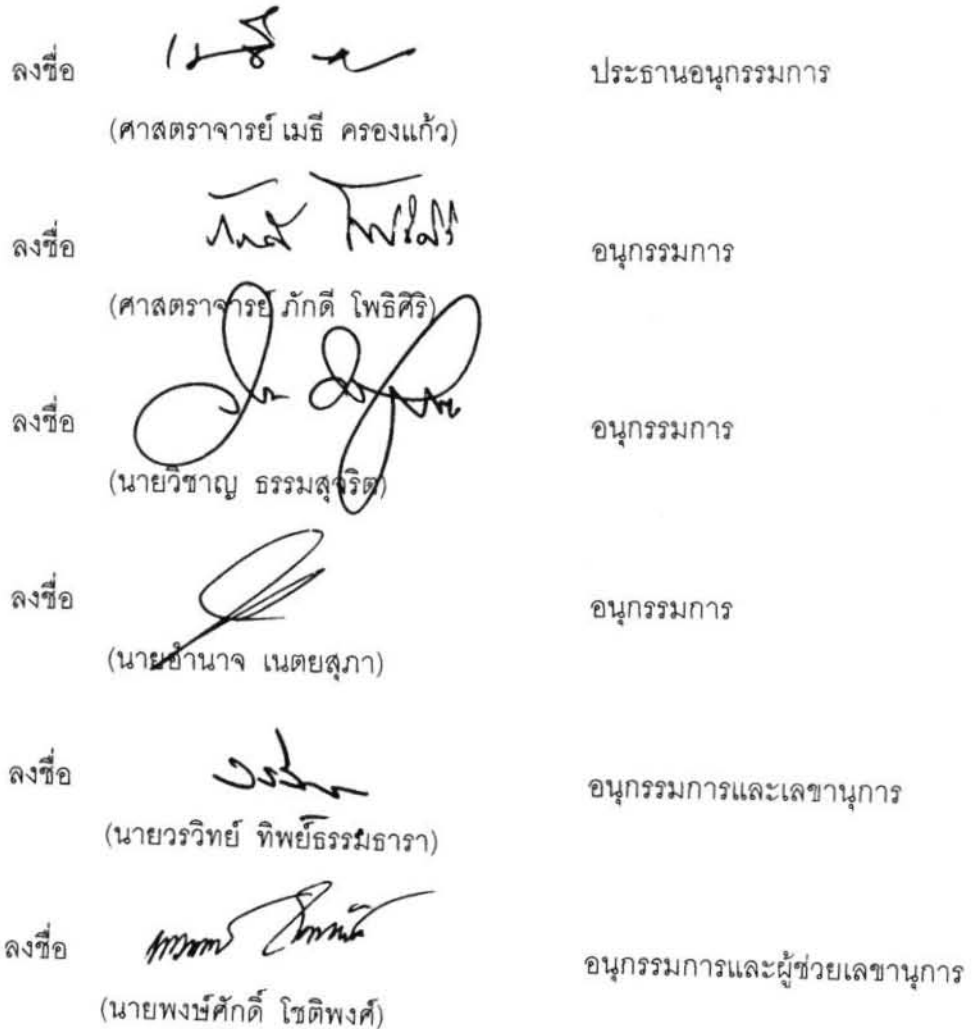 ลงชื่อ เมธี ประธานอนุกรรมการ
(ศาสตราจารย์ เมธี ครองแก้ว)
ลงชื่อ ภักดี โพธิศิริ อนุกรรมการ
(ศาสตราจารย์ ภักดี โพธิศิริ)
ลงชื่อ อนุกรรมการ
(นายวิชาญ ธรรมสุจริต)
ลงชื่อ อนุกรรมการ
(นายอำนาจ เนตยสุภา)
ลงชื่อ อนุกรรมการและเลขานุการ
(นายวรวิทย์ ทิพย์ธรรมธารา)
ลงชื่อ อนุกรรมการและผู้ช่วยเลขานุการ
(นายพงษ์ศักดิ์ โชติพงศ์)